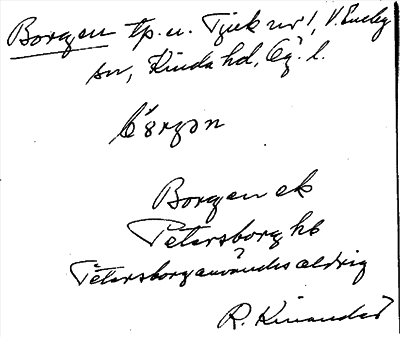 Borgen tp. u. Tjuk nr 1, V. Eneby
sn, Kinda hd, Ög. l.
bǒrgən
Borgen ek
Petersborg hb
Petersborg användes aldrig
R. Kinander